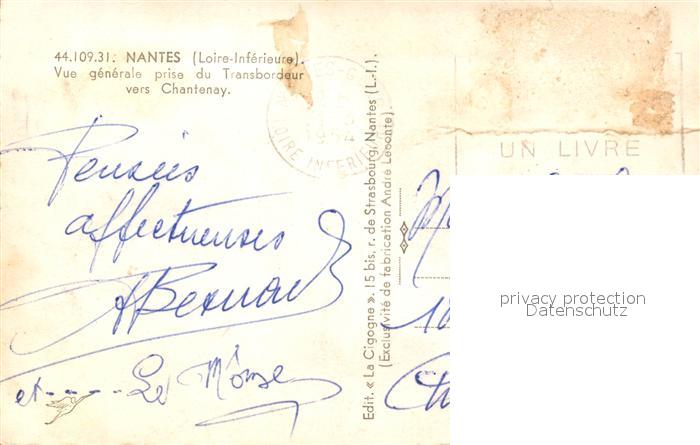 44.109.31. NANTES (Loire-Inférieure).
Vue générale prise du Transbordeur
vers Chantenay.
Pensées
affectueuses
ABernard
et - - - - Le Môme
LOIRE INFERIEURE
Edit. « La Cigogne ». 15 bis, r. de Strasbourg, Nantes (L.-I.).
(Exclusivité de fabrication André Leconte).
UN LIVRE
privacy protection
Datenschutz